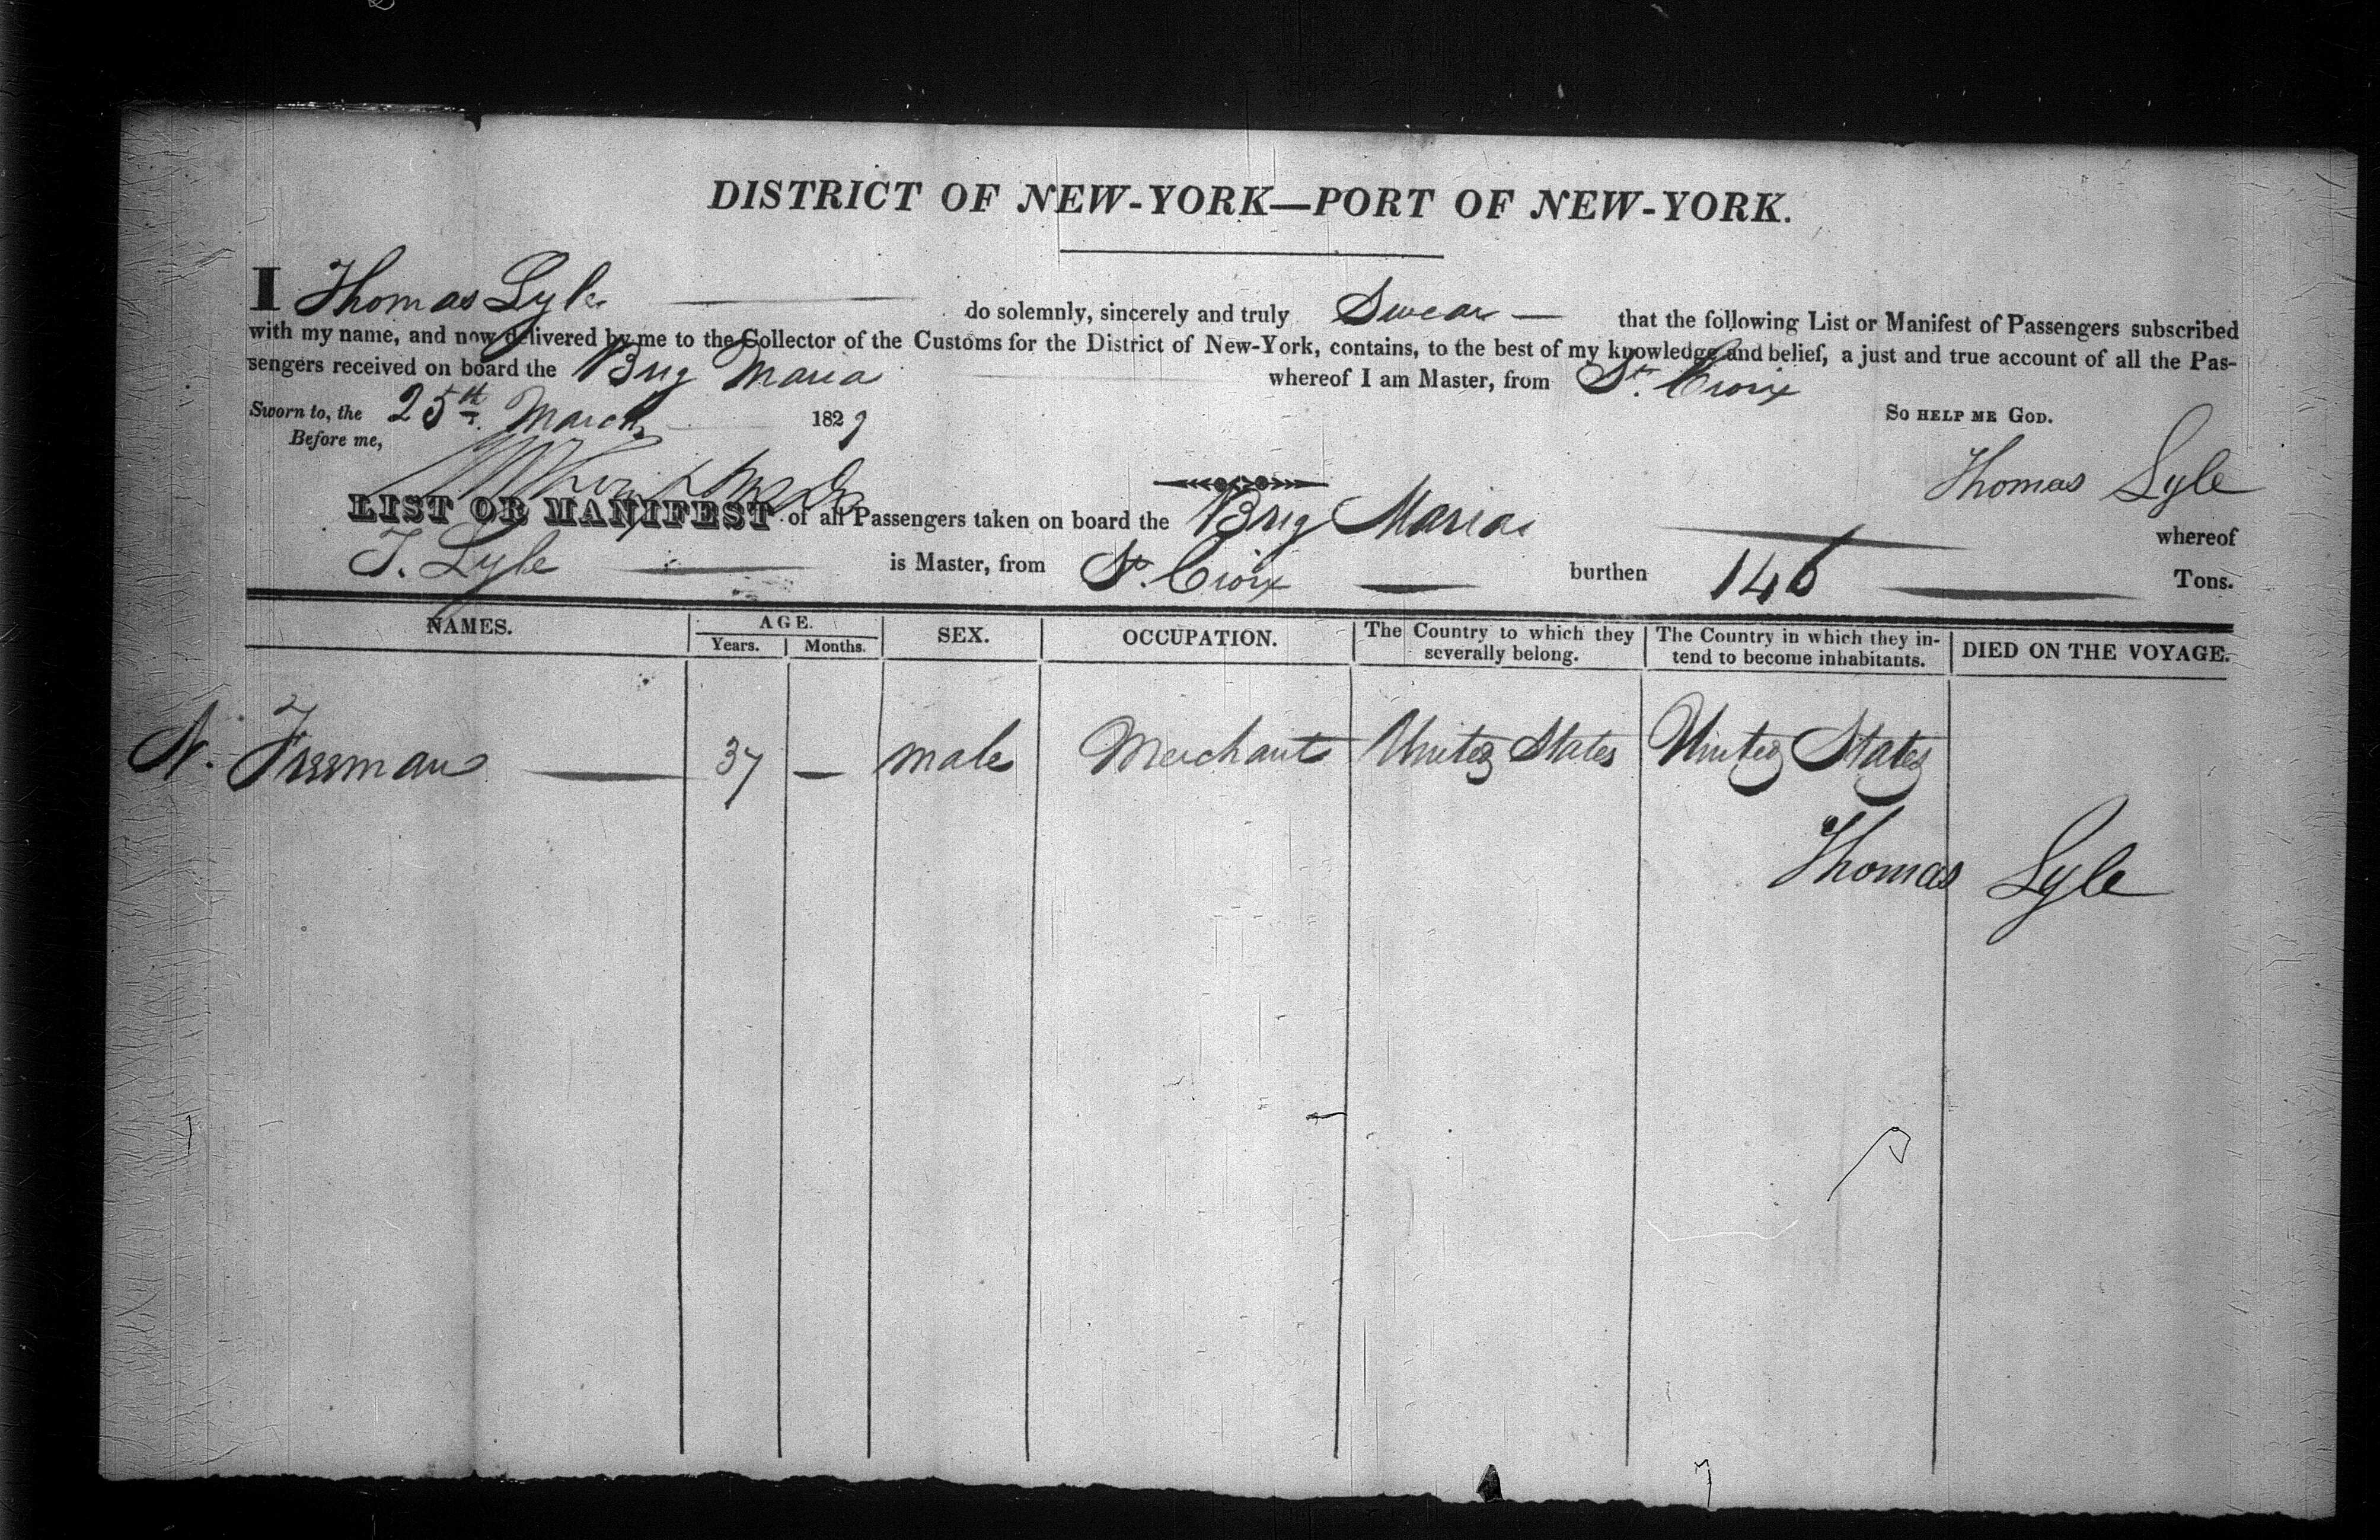 DISTRICT OF NEW-YORK—PORT OF NEW-YORK.
I Thomas Lyle do solemnly, sincerely and truly Swear — that the following List or Manifest of Passengers subscribed
with my name, and now delivered by me to the Collector of the Customs for the District of New-York, contains, to the best of my knowledge and belief, a just and true account of all the Pas-
sengers received on board the Brig Maria whereof I am Master, from St. Croix
Sworn to, the 25th. March 1829 SO HELP ME GOD.
Before me,
Thomas Lyle
LIST OR MANIFEST of all Passengers taken on board the Brig Maria whereof
T. Lyle is Master, from St. Croix burthen 146 Tons.
NAMES. AGE. Years. Months. SEX. OCCUPATION. The Country to which they severally belong. The Country in which they in-tend to become inhabitants. DIED ON THE VOYAGE.
N. Freeman 37 — male Merchant United States United States
Thomas Lyle